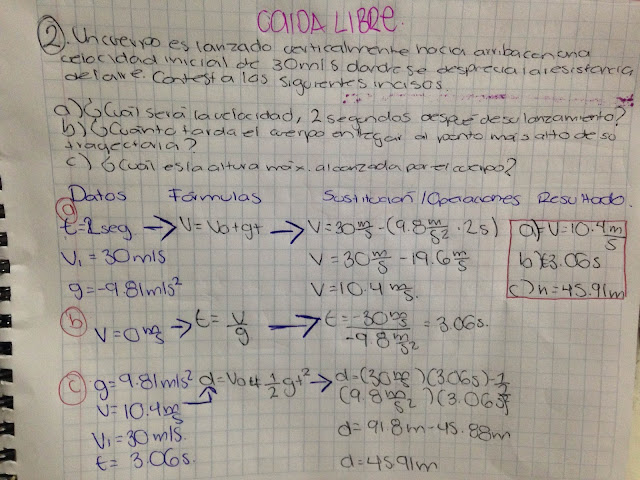 CAIDA LIBRE.
2. Un cuerpo es lanzado verticalmente hacia arriba con una
velocidad inicial de 30m/s donde se desprecia la resistencia
del aire. Contesta los siguientes incisos.
a) ¿Cuál será la velocidad, 2 segundos despué de su lanzamiento?
b) ¿Cuánto tarda el cuerpo en llegar al punto más alto de so
trayectoria?
c) ¿Cuál es la altura máx. alcanzada por el cuerpo?
Datos Fórmulas Sustitución/Operaciones Resultado.
a
t=2seg → V=Vo+gt → V=30m/s-(9.8m/s2·2s) a) V=10.4m/s
V1=30m/s V=30m/s-19.6m/s b) t=3.06s
g=-9.81m/s² V=10.4m/s. c) h=45.91m
b V=0m/s → t=V/g → t=-30m/s/-9.8m/s2=3.06s.
c g=9.81m/s² d=Vo+1/2gt² → d=(30m/s)(3.06s)-1/2
V=10.4m/s (9.8m/s2)(3.06s)²
V1=30m/s. d=91.8m-45.88m
t=3.06s. d=45.91m